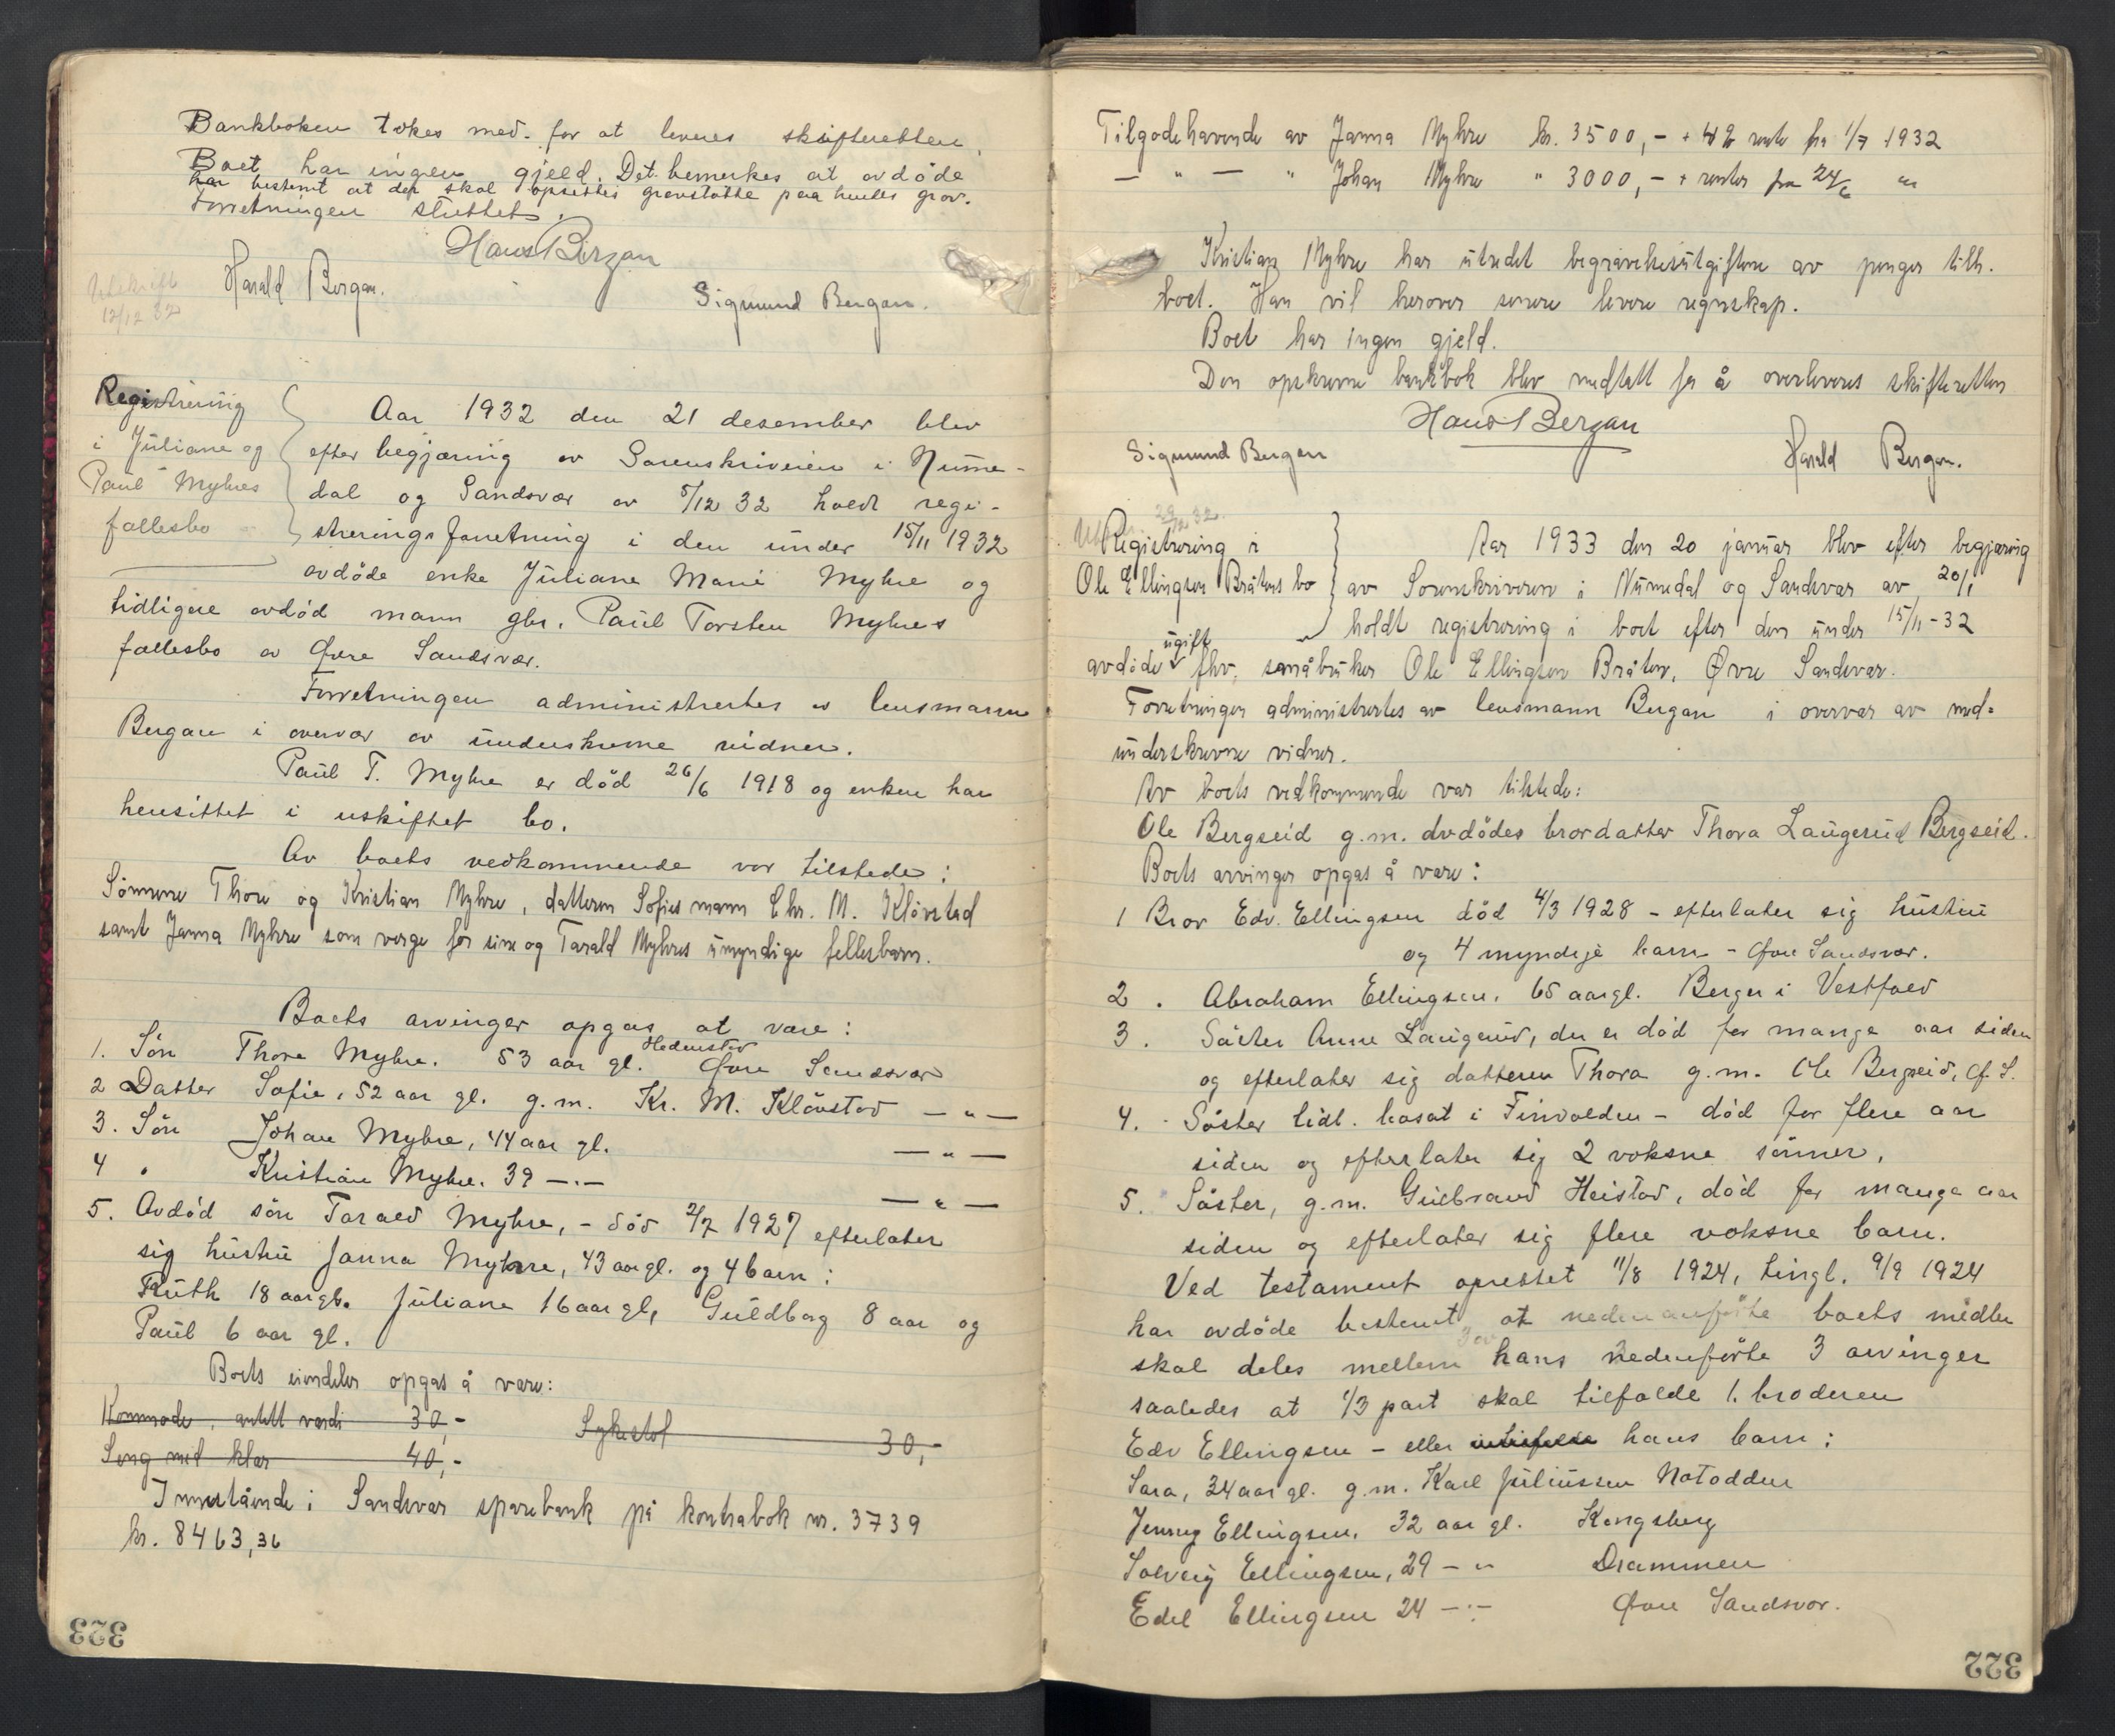 Bankboken tokes med for at leveres skifteretten.
Boet har ingen gjeld. Det bemerkes at avdöde
har bestemt at der skal opsettes gravstötte paa hendes grav.
Forretningen sluttet.
Hans Bergan
Harald Bergan.
Sigmund Bergan.
Utskrift
12/12 32
Registrering
i Juliane og
Paul Myhres
fællesbo
Aar 1932 den 21 desember blev
efter begjæring av Sorenskriveren i Nume-
dal og Sandsvær av 5/12 32 holdt regi-
streringsforretning i den under 15/11 1932
avdöde enke Juliane Marie Myhre og
tidligere avdöd mann gbr. Paul Torsten Myhres
fællesbo av Øvre Sandsvær.
Forretningen administrertes av lensmann
Bergan i overvær av underskrevne vidner.
Paul T. Myhre er död 26/6 1918 og enken har
hensittet i uskiftet bo.
Av boets vedkommende var tilstede:
Sönnene Thore og Kristian Myhre, datteren Sofies mann Chr. M. Klövstad
samt Janna Myhre som verge for sine og Tarald Myhres umyndige fellesbarn.
Boets arvinger opgas at være:
1. Sön Thore Myhre. 53 aar gl. Hedenstad Øvre Sandsvær
2 Datter Sofie, 52 aar gl. g.m. Kr. M. Klövstad — " —
3. Sön Johan Myhre, 44 aar gl. — " —
4 " Kristian Myhre. 39 — " — — " —
5. Avdöd sön Tarald Myhre, - död 2/7 1927 efterlater
sig hustru Janna Myhre, 43 aar gl. og 4 barn:
Ruth 18 aar gl. Juliane 16 aar gl, Guldborg 8 aar og
Paul 6 aar gl.
Boets eiendeler opgas å være:
Kommode, antatt verdi 30,-
Sykestol 30,-
Seng med klær 40,-
Innestående i Sandsvær sparebank på kontrabok nr. 3739
kr. 8463,36
323
Tilgodehavende av Janna Myhre kr. 3500,- + 4% rente fra 1/7 1932
— " — " Johan Myhre " 3000,- + renter fra 24/6 "
Kristian Myhre har utredet begravelsesutgiftene av penger tilh.
boet. Han vil herover senere levere regnskap.
Boet har ingen gjeld.
Den opskrevne bankbok blev medtatt for å overleveres skifteretten
Hans Bergan
Sigmund Bergan
Harald Bergan.
29/12 32.
Registrering i
Ole Ellingsen Bråtens bo
Aar 1933 den 20 januar blev efter begjæring
av Sorenskriveren i Numedal og Sandsvær av 20/1
holdt registrering i boet efter den under 15/11-32
avdöde ugift fhv. småbruker Ole Ellingsen Bråten, Øvre Sandsvær.
Forretningen administrertes av lensmann Bergan i overvær av med-
underskrevne vidner.
Av boets vedkommende var tilstede:
Ole Bergseid g.m. avdödes brordatter Thora Laugerud Bergseid.
Boets arvinger opgas å være:
1 Bror Edv. Ellingsen död 4/3 1928 - efterlater sig hustru
og 4 myndige barn - Øvre Sandsvær.
2 . Abraham Ellingsen. 65 aar gl. Berger i Vestfold
3 . Söster Anne Laugerud, der er död for mange aar siden
og efterlater sig datteren Thora g.m. Ole Bergseid, Ø. S.
4. Söster tidl. bosat i Finvolden - död for flere aar
siden og efterlater sig 2 voksne sönner.
5. Söster, g.m. Gulbrand Heistad, död for mange aar
siden og efterlater sig flere voksne barn.
Ved testament oprettet 11/8 1924, tingl. 9/9 1924
har avdöde bestemt, at nedenanförte boets midler
skal deles mellem hans nedenförte 3 arvinger
saaledes at 1/3 part skal tilfalde 1. broderen
Edv Ellingsen - eller hans barn:
Sara, 34 aar gl. g.m. Karl Juliussen Notodden
Jenny Ellingsen, 32 aar gl. Kongsberg
Solveig Ellingsen, 29 — " Drammen
Edel Ellingsen 24 — " — Øvre Sandsvær.
322